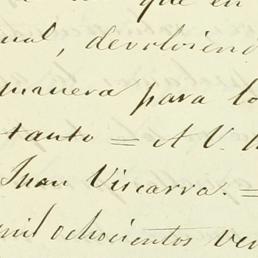 que en
ual, devolviend
manera para lo
tanto = A V.
Juan Viscarra. =
mil ochocientos ve